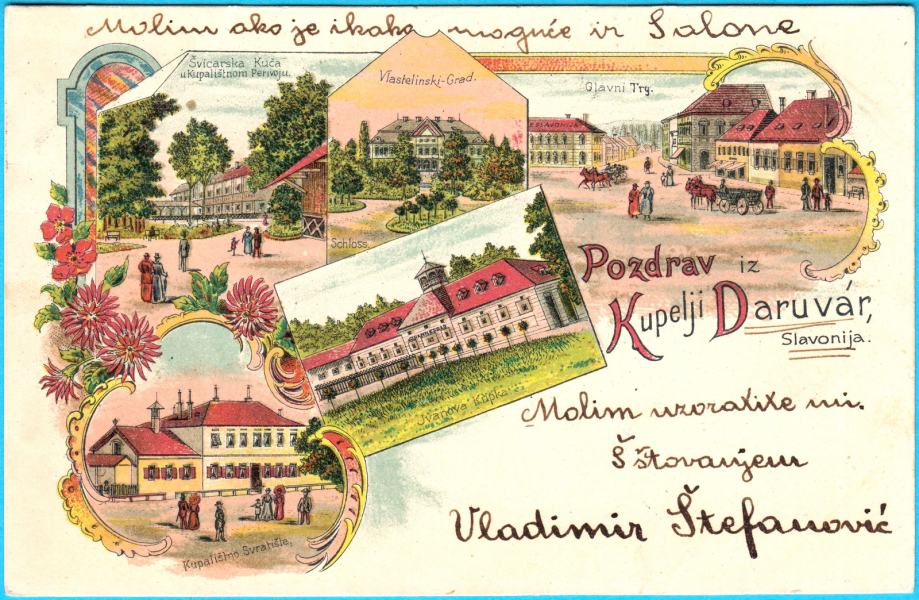 Molim ako je ikako moguće iz Salone
Švicarska Kuća
u Kupalištnom Perivoju.
Vlastelinski-Grad.
Glavni Trg.
Schloss.
Pozdrav iz
Kupelji Daruvár,
Slavonija.
Ivanova Kupka.
Molim uzvratite mi.
S štovanjem
Vladimir Štefanović
Kupalištno Svratište.